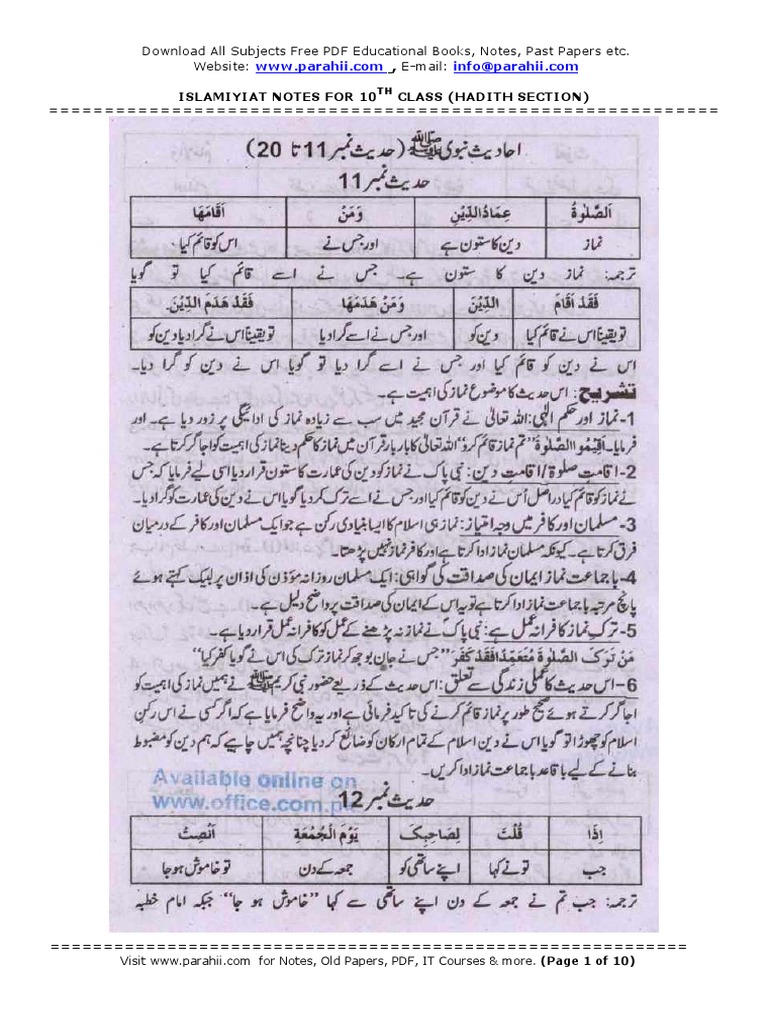 Download All Subjects Free PDF Educational Books, Notes, Past Papers etc.
Website: www.parahii.com , E-mail: info@parahii.com
ISLAMIYIAT NOTES FOR 10TH CLASS (HADITH SECTION)
======================================================================
احادیث نبوی ﷺ (حدیث نمبر 11 تا 20)
حدیث نمبر 11
اَلصَّلٰوةُ عِمَادُالدِّيْنِ وَمَنْ اَقَامَهَا
نماز دین کا ستون ہے اور جس نے اس کو قائم کیا
ترجمہ: نماز دین کا ستون ہے۔ جس نے اسے قائم کیا تو گویا
فَقَدْ اَقَامَ الدِّيْنَ وَمَنْ هَدَمَهَا فَقَدْ هَدَمَ الدِّيْنَ۔
تو یقیناً اس نے قائم کیا دین کو اور جس نے اسے گرا دیا تو یقیناً اس نے گرا دیا دین کو
اس نے دین کو قائم کیا اور جس نے اسے گرا دیا تو گویا اس نے دین کو گرا دیا۔
تشریح: اس حدیث کا موضوع نماز کی اہمیت ہے۔
1- نماز اور حکم الٰہی: اللہ تعالیٰ نے قرآن مجید میں سب سے زیادہ نماز کی ادائیگی پر زور دیا ہے۔ اور
فرمایا۔ اَقِيْمُوا الصَّلٰوةَ ”تم نماز قائم کرو“ اللہ تعالیٰ کا بار بار قرآن میں نماز کا حکم دینا نماز کی اہمیت کو اجاگر کرتا ہے۔
2- اقامتِ صلوٰۃ / اقامتِ دین: نبی پاک نے نماز کو دین کی عمارت کا ستون قرار دیا اسی لیے فرمایا کہ جس
نے نماز کو قائم کیا دراصل اُس نے دین کو قائم کیا اور جس نے اسے ترک کر دیا گویا اس نے دین کی عمارت کو گرا دیا۔
3- مسلمان اور کافر میں وجہ امتیاز: نماز ہی اسلام کا ایسا بنیادی رکن ہے جو ایک مسلمان اور کافر کے درمیان
فرق کرتا ہے۔ کیونکہ مسلمان نماز ادا کرتا ہے اور کافر نماز نہیں پڑھتا۔
4- با جماعت نماز ایمان کی صداقت کی گواہی: ایک مسلمان روزانہ مؤذن کی اذان پر لبیک کہتے ہوئے
پانچ مرتبہ با جماعت نماز ادا کرتا ہے تو یہ اس کے ایمان کی صداقت پر واضح دلیل ہے۔
5- ترکِ نماز کافرانہ عمل ہے: نبی پاک نے نماز نہ پڑھنے کے عمل کو کافرانہ عمل قرار دیا ہے۔
مَنْ تَرَكَ الصَّلٰوةَ مُتَعَمِّدًا فَقَدْ كَفَرَ ”جس نے جان بوجھ کر نماز ترک کی اس نے گویا کفر کیا“
6- اس حدیث کا عملی زندگی سے تعلق: اس حدیث کے ذریعے حضور نبی کریم ﷺ نے ہمیں نماز کی اہمیت کو
اجاگر کرتے ہوئے صحیح طور پر نماز قائم کرنے کی تاکید فرمائی ہے اور یہ واضح فرمایا ہے کہ اگر کسی نے اس رکنِ
اسلام کو چھوڑا تو گویا اس نے دین اسلام کے تمام ارکان کو ضائع کر دیا چنانچہ ہمیں چاہیے کہ ہم دین کو مضبوط
بنانے کے لیے باقاعد با جماعت نماز ادا کریں۔
Available online on
www.office.com.p
حدیث نمبر 12
اِذَا قُلْتَ لِصَاحِبِكَ يَوْمَ الْجُمُعَةِ اَنْصِتْ
جب تو نے کہا اپنے ساتھی کو جمعہ کے دن تو خاموش ہو جا
ترجمہ: جب تم نے جمعہ کے دن اپنے ساتھی سے کہا ”خاموش ہو جا“ جبکہ امام خطبہ
==================================================================
Visit www.parahii.com for Notes, Old Papers, PDF, IT Courses & more. (Page 1 of 10)